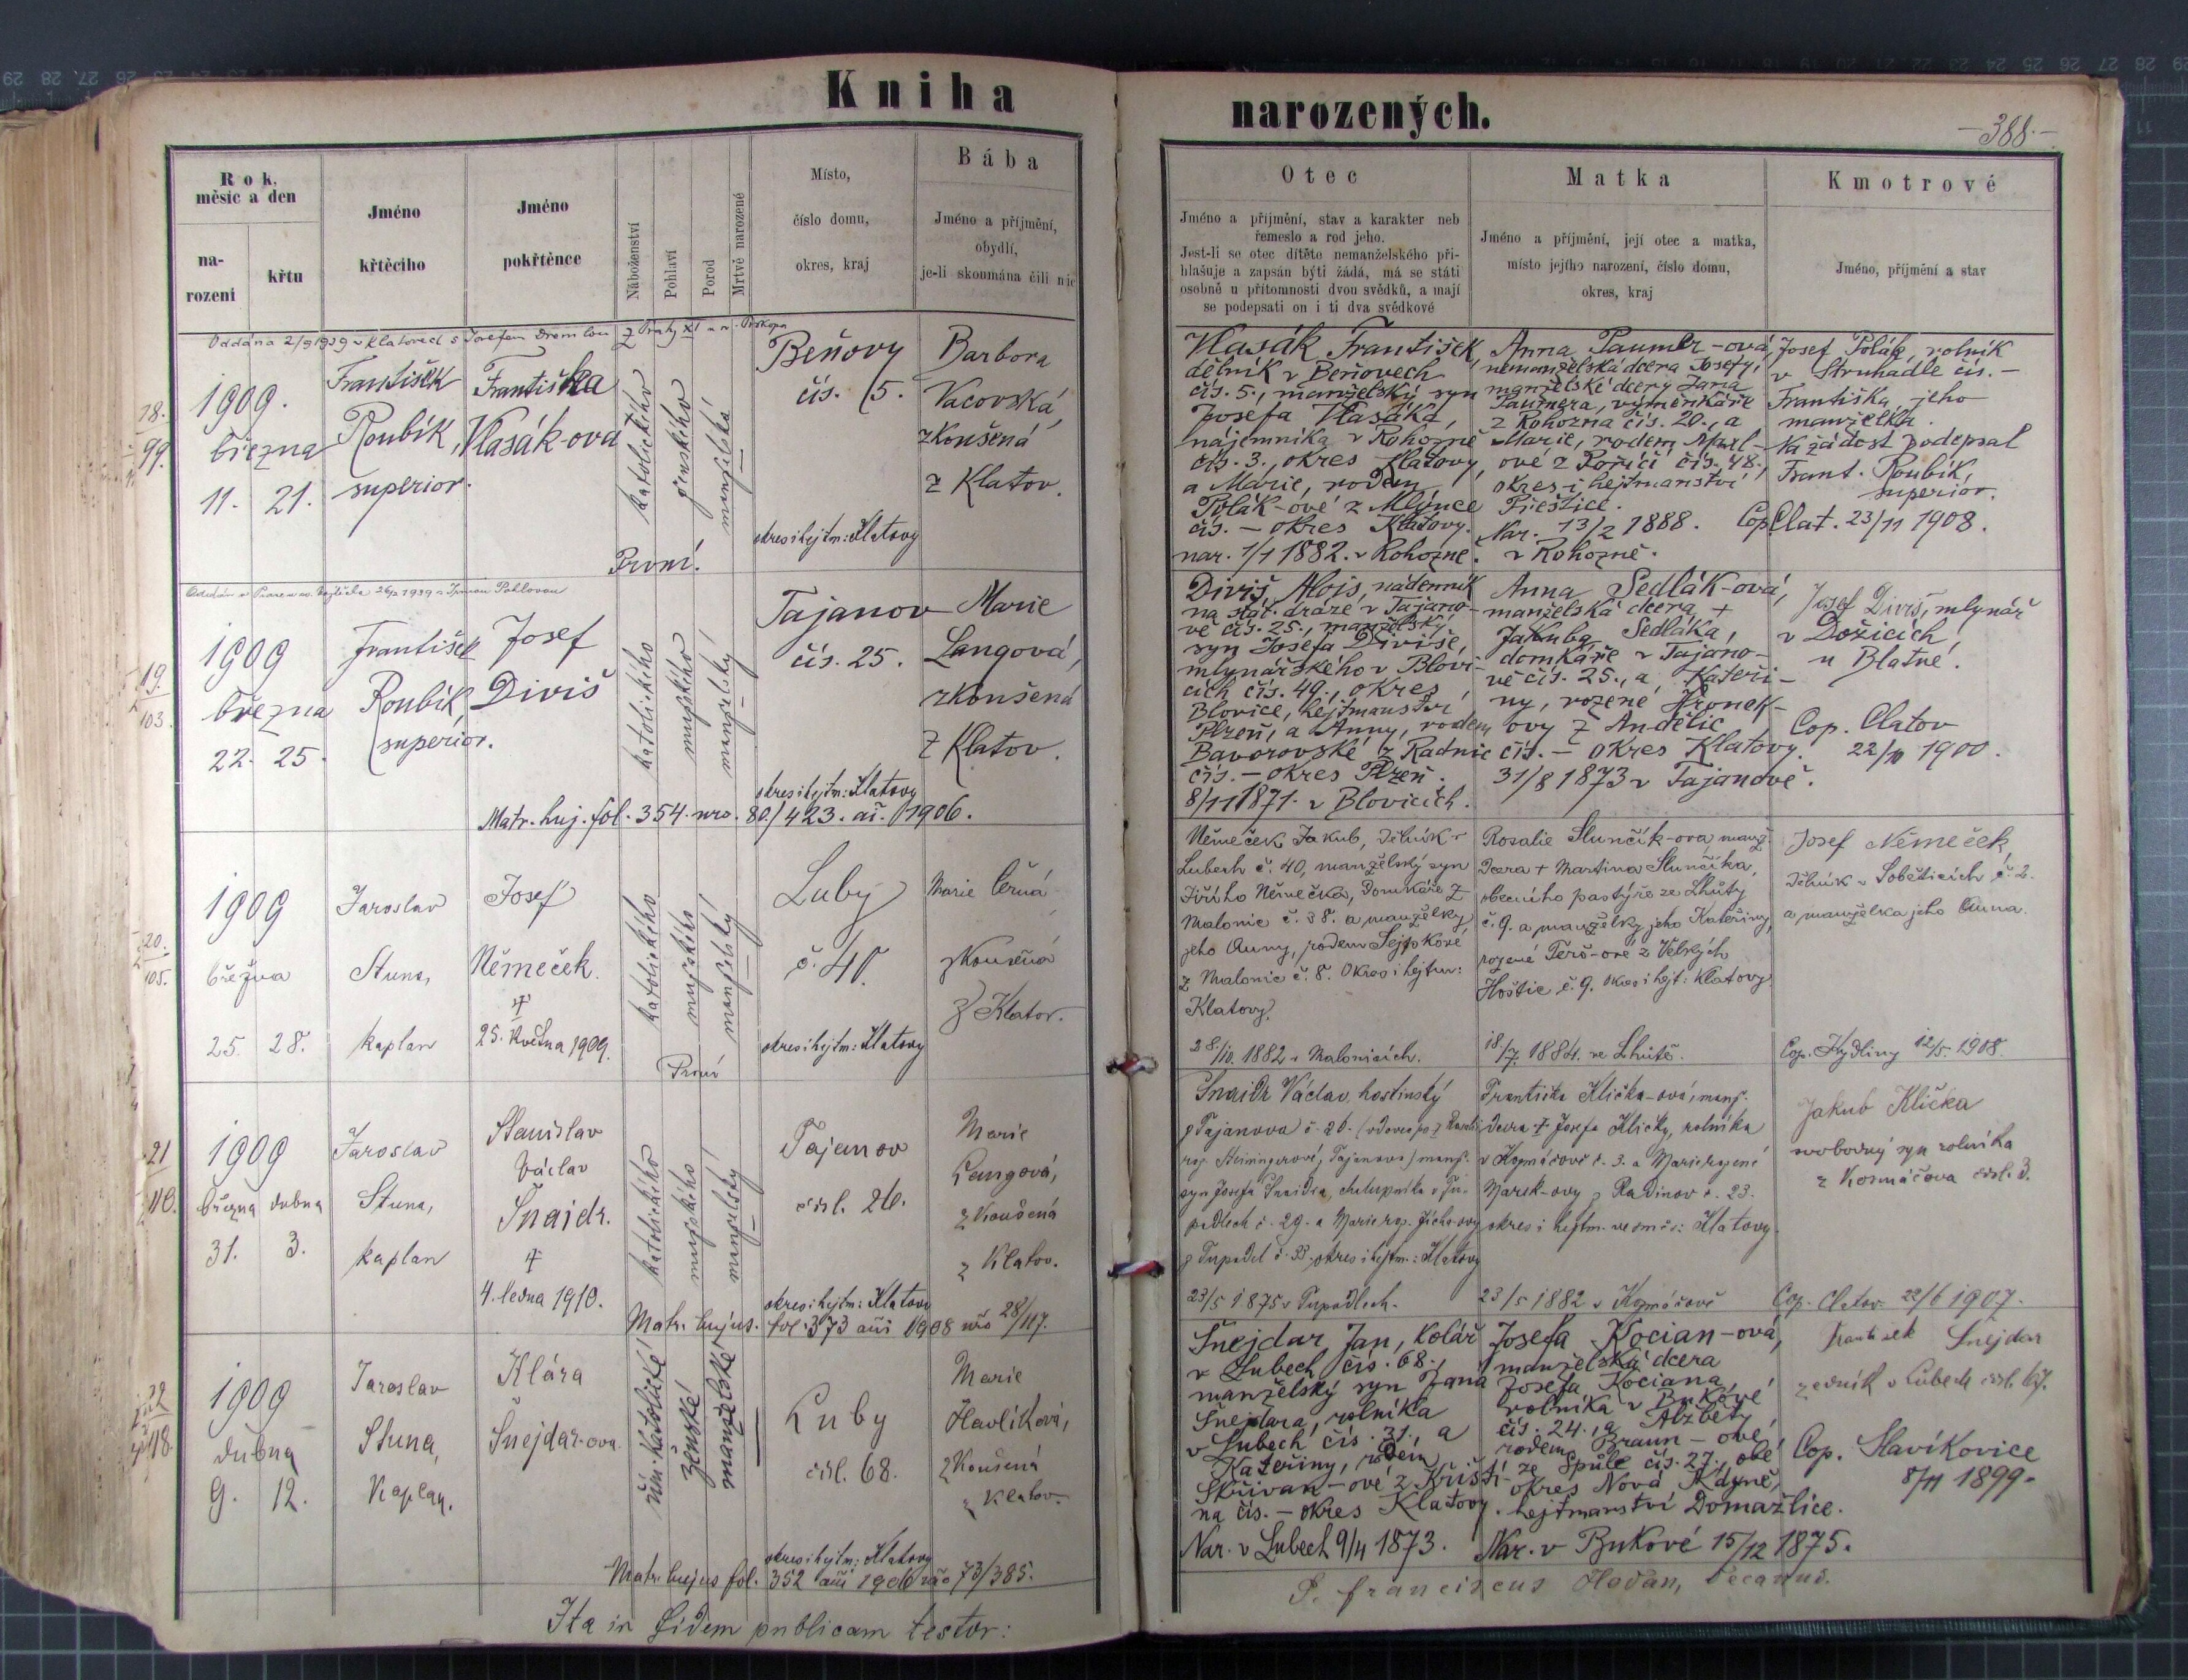 Kniha narozených.
-388.-
Rok, měsíc a den
na-
rození
křtu
Jméno
křtěcího
Jméno
pokřtěnce
Náboženství
Pohlaví
Porod
Mrtvě narozené
Místo,
číslo domu,
okres, kraj
Bába
Jméno a příjmění,
obydlí,
je-li skoumána čili nic
Otec
Jméno a příjmění, stav a karakter neb
řemeslo a rod jeho.
Jest-li se otec dítěte nemanželského při-
hlašuje a zapsán býti žádá, má se státi
osobně u přítomnosti dvou svědků, a mají
se podepsati on i ti dva svědkové
Matka
Jméno a příjmění, její otec a matka,
místo jejího narození, číslo domu,
okres, kraj
Kmotrové
Jméno, příjmění a stav
Oddána 2/9 1939 v Klatovech s Josefem
18.
99.
1909.
března
11. 21.
František
Roubík,
superior.
Františka
Vlasák-ová
katolického
ženského
manželská
První.
Beňovy
čís. 5.
okres i hejtm: Klatovy
Barbora
Vacovská,
zkoušená
z Klatov.
Vlasák František,
dělník v Beňovech
čís. 5., manželský syn
Josefa Vlasáka,
nájemníka v Rohozně
čís. 3., okres Klatovy,
a Marie, rodem
Polák-ové z Mlýnce
čís. – okres Klatovy.
nar. 1/1 1882. v Rohozně.
Anna Taumer-ová,
nemanželská dcera Josefy,
manželské dcery Jana
Taumera, výměnkáře
z Rohozna čís. 20., a
Marie, rodem
ové z Poříčí čís. 48.,
okres i hejtmanství
Přeštice.
Nar. 13/2 1888.
v Rohozně.
Josef Polák, rolník
v Struhadle čís. –
Františka jeho
manželka.
Na žádost podepsal
Frant. Roubík,
superior.
Cop. Clat. 23/11 1908.
19.
103.
1909
března
22. 25.
František
Roubík,
superior.
Josef
Diviš
katolického
mužského
manželský
Tajanov
čís. 25.
okres i hejtm: Klatovy
Matr. huj. fol. 354. nro. 80/423. ai. 1906.
Marie
Langová,
zkoušená
z Klatov.
Diviš Alois, nádenník
na stát. dráze v Tajano-
vě čís. 25., manželský
syn Josefa Diviše,
mlynářského v Blovi-
cích čís. 49., okres
Blovice, hejtmanství
Plzeň, a Anny, rodem
Bavorovské z Radnic
čís. – okres Plzeň.
8/11 1871. v Blovicích.
Anna Sedlák-ová,
manželská dcera +
Jakuba Sedláka,
domkáře v Tajano-
vě čís. 25., a Kateři-
ny, rozené Hronek-
ovy z Andělic
čís. – okres Klatovy.
31/8 1873 v Tajanově.
Josef Diviš, mlynář
v Dožicích
u Blatné.
Cop. Clatov
22/10 1900.
20.
105.
1909
března
25. 28.
Jaroslav
Stuna,
kaplan
Josef
Němeček.
25. května 1909.
katolického
mužského
manželský
První
Luby
č. 40.
okres i hejtm: Klatovy
Marie Černá
zkoušená
z Klatov.
Němeček Jakub, dělník v
Lubech č. 40, manželský syn
Jiřího Němečka, domkáře z
Malonic č. 38. a manželky
jeho Anny, rodem Sejpkové
z Malonic č. 8. Okres i hejtm:
Klatovy.
28./10. 1882 v Malonicích.
Rosalie Slunčík-ova manž.
dcera + Martina Slunčíka,
obecního pastýře ze Lhůty
č. 9. a manželky jeho Kateřiny,
rozené Terš-ové z Velkých
Hoštic č. 9. Okres i hejt: Klatovy
18./7. 1884. ve Lhůtě.
Josef Němeček,
dělník v Soběticích č. 2.
a manželka jeho Anna.
Cop. Hydliny 12/5. 1908.
21
110.
1909
března dubna
31. 3.
Jaroslav
Stuna,
kaplan
Stanislav
Václav
Šnaidr.
4. ledna 1910.
katolického
mužského
manželský
Tajanov
čísl. 26.
okres i hejtm: Klatovy
Matr. hujus. fol. 373 aii 1908 nro 28/117.
Marie
Langová,
zkoušená
z Klatov.
Šnaidr Václav, hostinský
z Tajanova č. 26.
syn Josefa Šnaidra, chalupníka v Tu-
padlech č. 29. a Marie roz. Jícha-ovy
z Tupadel č. 33. okres i hejtm.: Klatovy
23/5 1875 v Tupadlech.
Františka Klička-ová, manž.
dcera + Josefa Kličky, rolníka
v Kosmáčově č. 3. a Marie rozené
Marek-ovy z Radinov č. 23.
okres i hejtm. ve směs: Klatovy.
23/5 1882 v Kosmáčově
Jakub Klička
svobodný syn rolníka
z Kosmáčova čísl. 3.
Cop. Clatov. 22/6 1907.
22
118
1909
dubna
9. 12.
Jaroslav
Stuna,
Kaplan.
Klára
Šnejdar-ova
řím. katolické
ženské
manželské
Luby
čísl. 68.
okres i hejtm: Klatovy
Matr. hujus fol. 352 aii 1906 nro 73/385.
Marie
Havlíková,
zkoušená
z Klatov.
Šnejdar Jan, kolář
v Lubech čís. 68.,
manželský syn Jana
Šnejdara, rolníka
v Lubech čís. 31., a
Kateřiny, rodem
Skřivan-ové z Křišti-
na čís. – okres Klatovy.
Nar. v Lubech 9/4 1873.
Josefa Kocian-ová,
manželská dcera
Josefa Kociana,
rolníka v Bukové
čís. 24., a Alžběty
rodem Braun-ové,
ze Spůle čís. 27., obé
okres Nová Kdyně,
hejtmanství Domažlice.
Nar. v Bukové 15/12 1875.
František Šnejdar
zedník v Lubech čísl. 67.
Cop. Slavíkovice
8/11 1899.
Ita in fidem publicam testor:
P. Franciscus Hodan, Decanus.